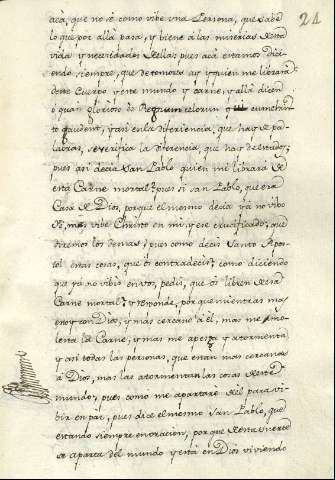 21
acá, que no se como vibe una Persona, que sabe
lo que por allá pasa, y biene a las miserias desta
vida y necesidades della; pues acá estamos dici-
endo siempre, que detemores ay y quien me librará
deste Cuerpo y este mundo y carne, y allá dicen
o quan glorioso es Regnum celorum o cum Christ-
to gaudent, y asi en la diferiencia, que hay de pa-
labras, se verifica la diferencia, que hay de estados;
pues asi decia San Pablo quien me librará de
esta Carne mortal? pues si San Pablo, que era
Casa de Dios, porque el mesmo decia ya no vibo
Yo, mas vibe Christo en mi, y ese crucificado; que
diremos los demas? pues como decis Santo Apos-
tol estas cosas, que os contradecis? como diciendo
que ya no vibis en vos, pedis, que os libren desta
Carne mortal? y responde, porque mientras mas
estoy con Dios, y más cercano à él, mas me mo-
lesta la Carne, y mas me apesga y atormenta
y asi todas las personas, que están mas cercanas
à Dios, mas las atormentan las cosas deste
mundo; pues como me apartaré del para vi-
bir en paz, pues dice el mesmo San Pablo, que
estando siempre en oracion, por que desta suerte
se aparta del mundo y está en Dios viviendo